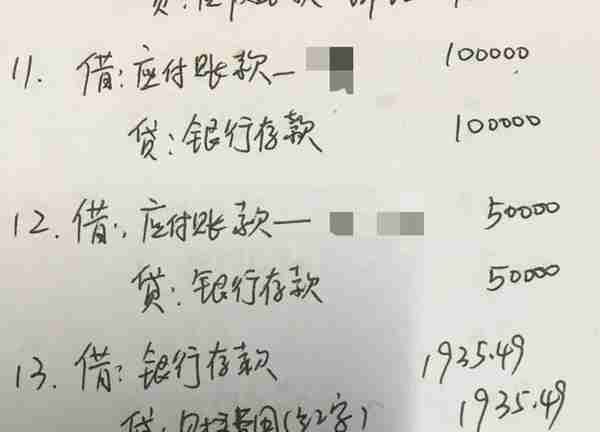 11. 借:应付账款— 100000
贷:银行存款 100000
12. 借:应付账款— 50000
贷:银行存款 50000
13. 借:银行存款 1935.49
贷: 1935.49